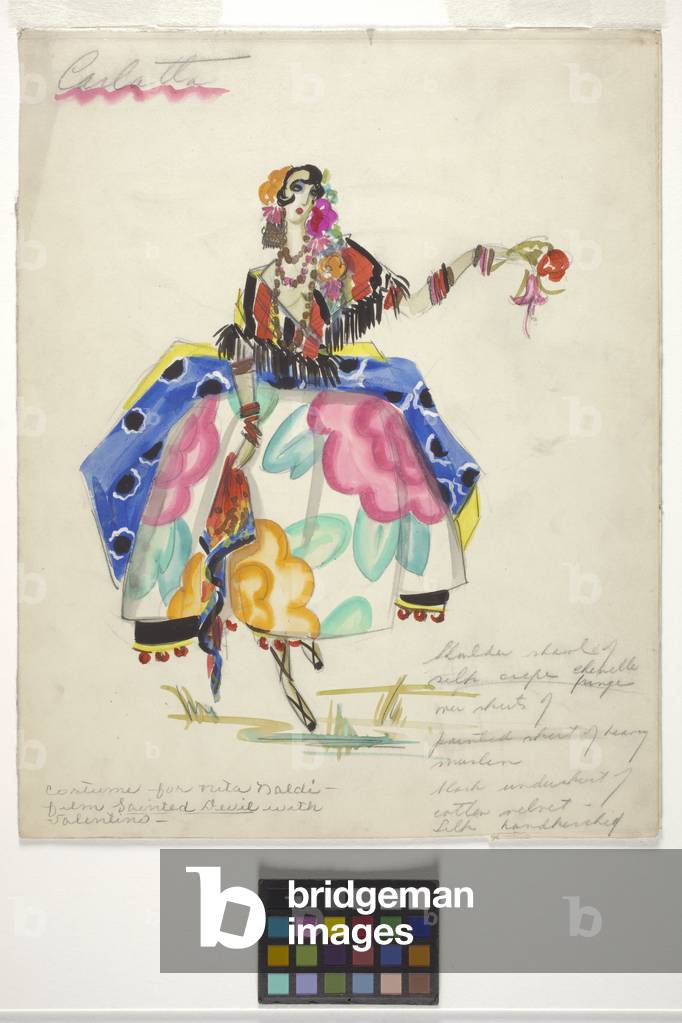 Carlotta
Shoulder shawl of
silk crepe chenille
fringe
over skirts of
painted skirt of heavy
muslin
black underskirt of
cotton velvet -
Silk handkerchief
Costume for Nita Naldi -
film Sainted Devil with
Valentino -
b bridgeman
images